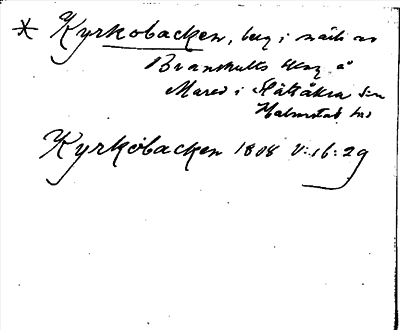 * Kyrkobacken, berg i
Branshults
Mared i Slättåkra sn
Halmstad hd
Kyrkobacken 1808 V:16:29